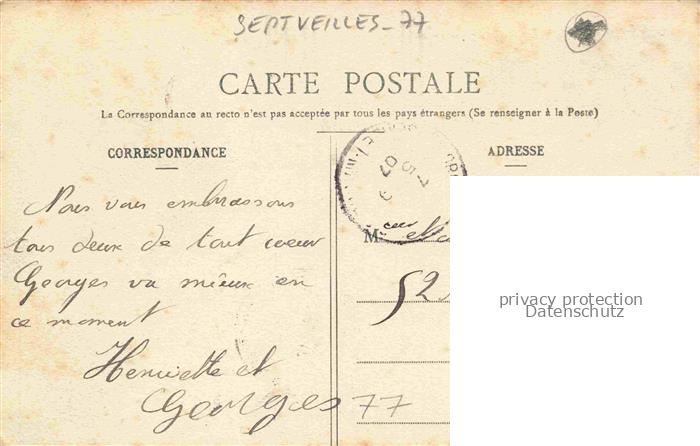 SEPTVEILLES_77
CARTE POSTALE
La Correspondance au recto n'est pas acceptée par tous les pays étrangers (Se renseigner à la Poste)
CORRESPONDANCE
Nous vous embrassons
tous deux de tout coeur
Georges va mieux en
ce moment
Henriette et
Georges
ADRESSE
07
M
52
77
privacy protection
Datenschutz